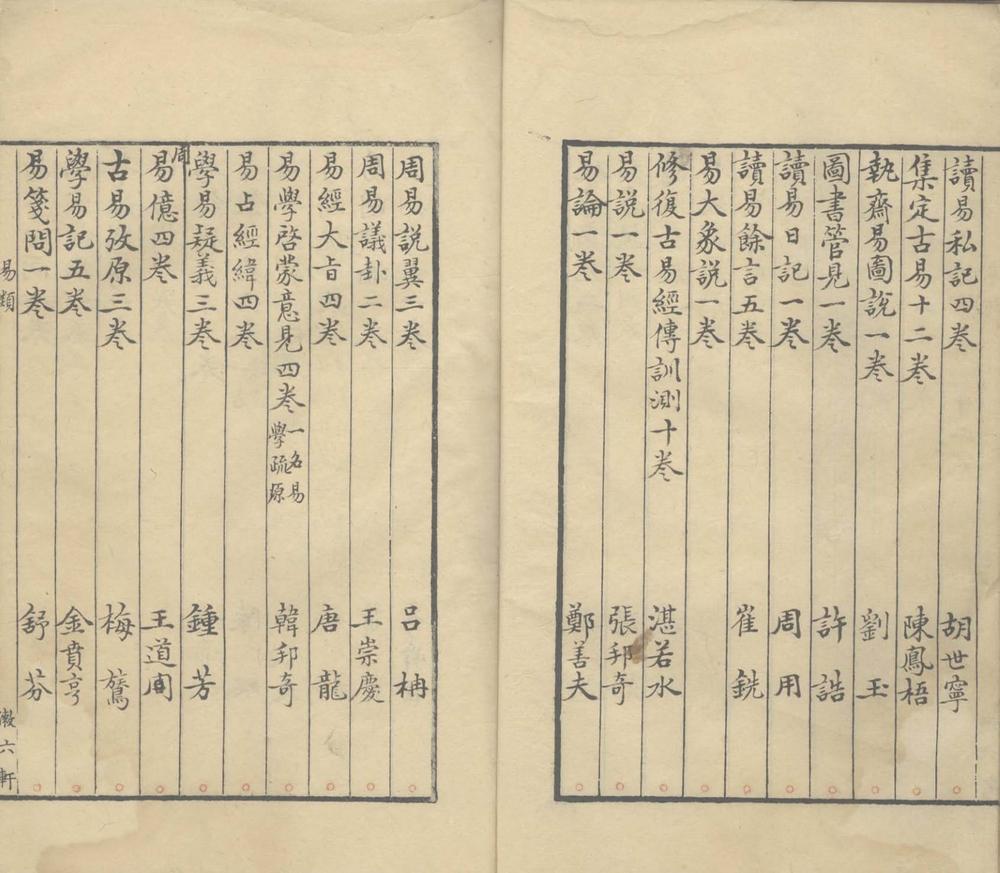 讀易私記四卷 胡世寧
集定古易十二卷 陳鳳梧
執齋易圖說一卷 劉玉
圖書管見一卷 許誥
讀易日記一卷 周用
讀易餘言五卷 崔銑
易大象說一卷
修復古易經傳訓測十卷 湛若水
易說一卷 張邦奇
易論一卷 鄭善夫
周易說翼三卷 吕柟
周易議卦二卷 王崇慶
易經大旨四卷 唐龍
易學啓蒙意見四卷 一名易學疏原 韓邦奇
易占經緯四卷
學易疑義三卷 鍾芳
周易億四卷 王道
古易攷原三卷 梅鷟
學易記五卷 金賁亨
易箋問一卷 舒芬
易類
漱六軒